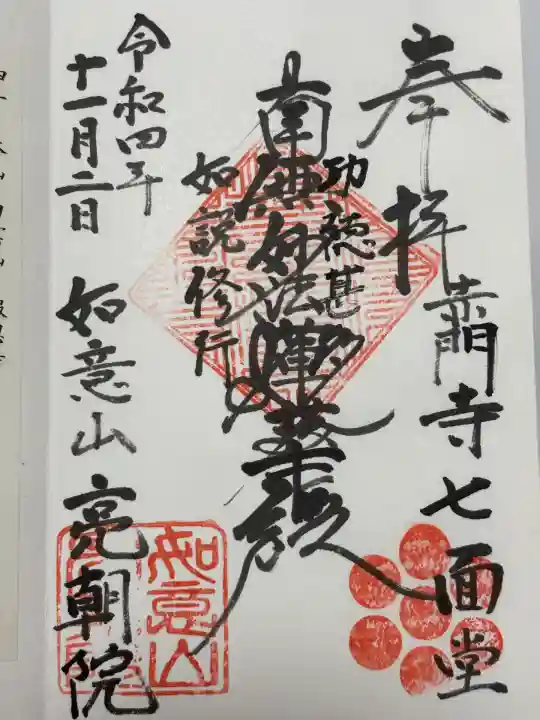 奉拝
赤門寺七面堂
功徳甚多
南無妙法蓮華経
如説修行
令和四年
十一月二日
如意山亮朝院
如意山